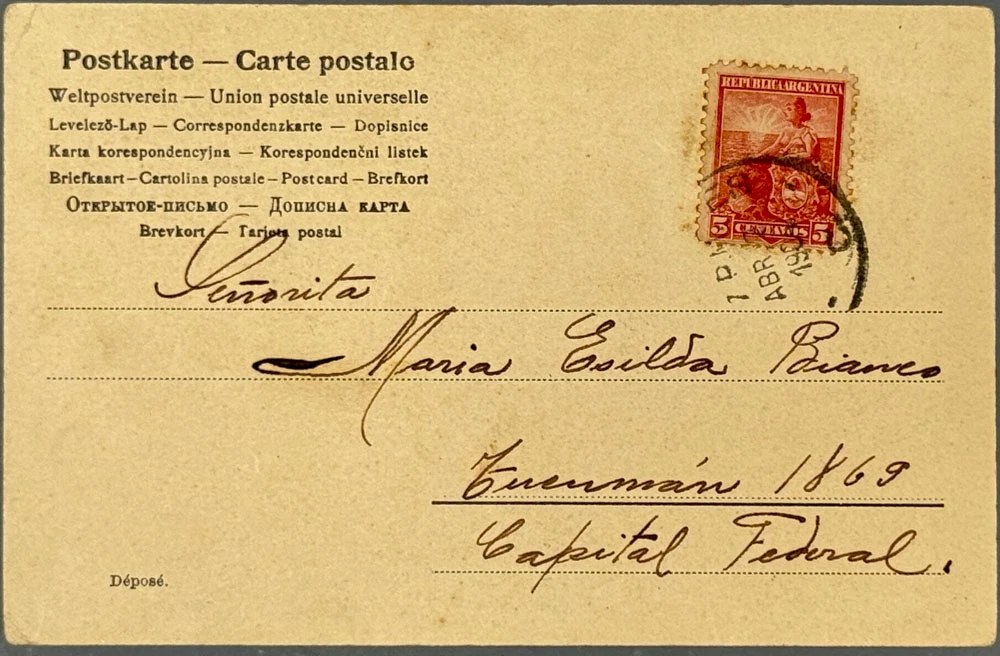 Postkarte — Carte postale
Weltpostverein — Union postale universelle
Levelező-Lap — Correspondenzkarte — Dopisnice
Karta korespondencyjna — Korespondenčni listek
Briefkaart — Cartolina postale — Post card — Brefkort
Открытое-письмо — Дописна карта
Brevkort — Tarjeta postal
REPUBLICA ARGENTINA
5 CENTAVOS 5
ABR
Señorita
Maria Esilda Bianco
Tucumán 1869
Capital Federal.
Déposé.